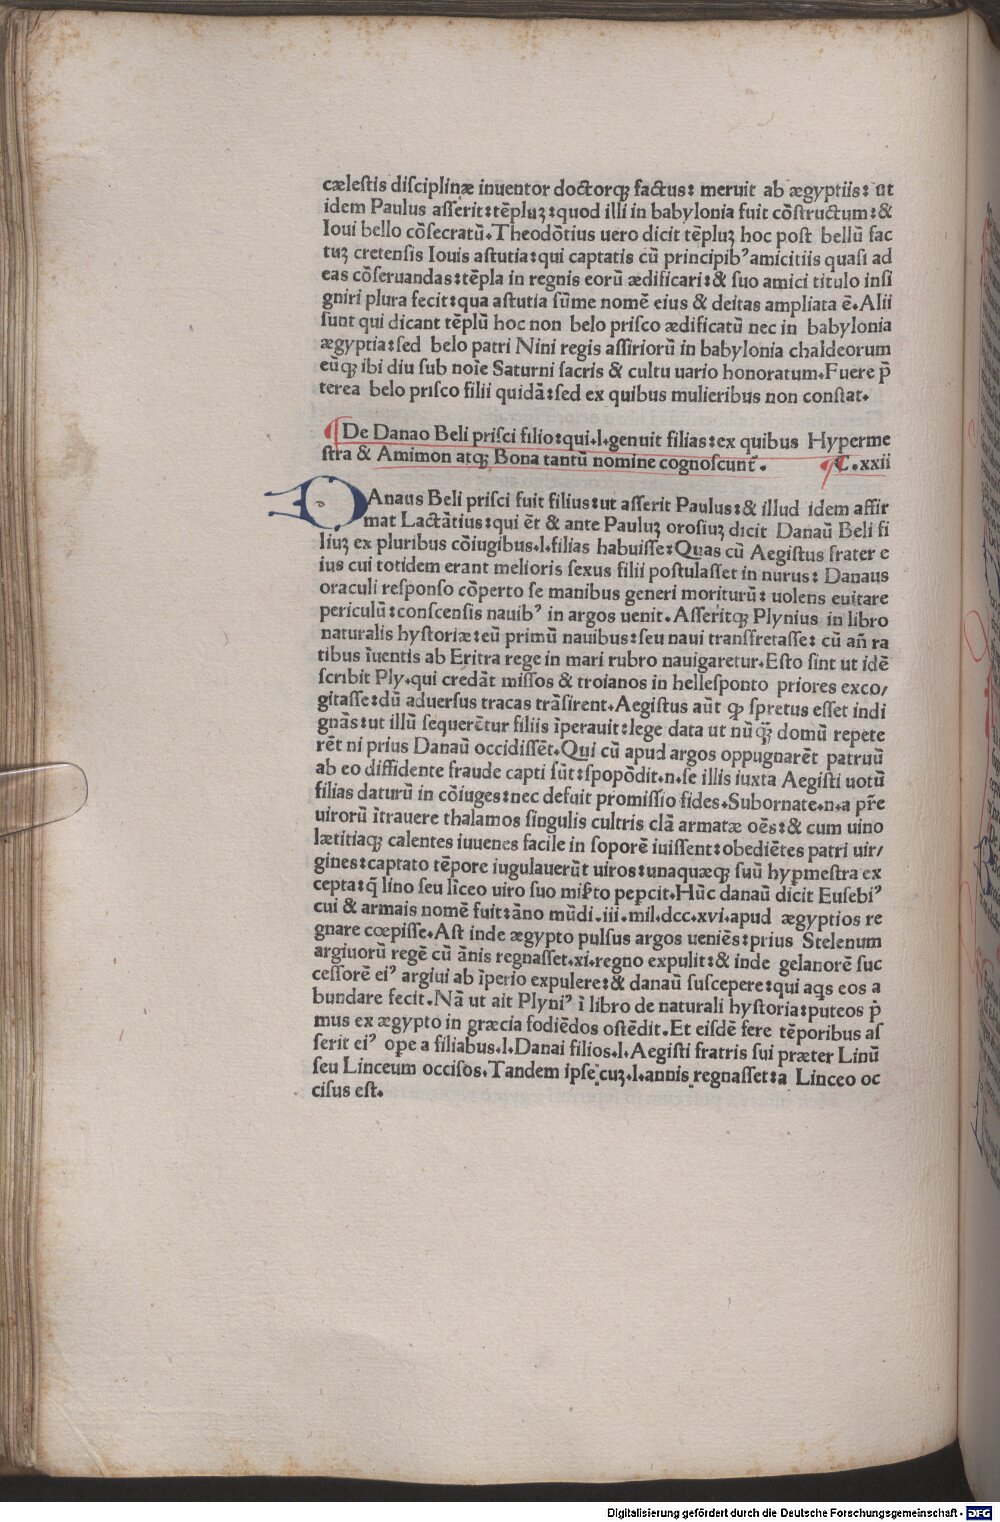 cælestis disciplinæ inuentor doctorqꝫ factus: meruit ab ægyptiis: ut
idem Paulus asserit: tēpluꝫ: quod illi in babylonia fuit cōstructum: &
Ioui bello cōsecratū. Theodōtius uero dicit tēpluꝫ hoc post bellū fac
tuꝫ cretensis Iouis astutia: qui captatis cū principibꝰ amicitiis quasi ad
eas cōseruandas: tēpla in regnis eorū ædificari: & suo amici titulo insi
gniri plura fecit: qua astutia sūme nomē eius & deitas ampliata ē. Alii
sunt qui dicant tēplū hoc non belo prisco ædificatū nec in babylonia
ægyptia: sed belo patri Nini regis assiriorū in babylonia chaldeorum
eūqꝫ ibi diu sub noīe Saturni sacris & cultu uario honoratum. Fuere p̄
terea belo prisco filii quidā: sed ex quibus mulieribus non constat.
¶ De Danao Beli prisci filio: qui .l. genuit filias: ex quibus Hyperme
stra & Amimon atqꝫ Bona tantū nomine cognoscunt̄. ¶ C. xxii
DAnaus Beli prisci fuit filius: ut asserit Paulus: & illud idem affir
mat Lactātius: qui ēt & ante Pauluꝫ orosiuꝫ dicit Danaū Beli fi
liuꝫ ex pluribus cōiugibus .l. filias habuisse: Quas cū Aegistus frater e
ius cui totidem erant melioris sexus filii postulasset in nurus: Danaus
oraculi responso cōperto se manibus generi moriturū: uolens euitare
periculū: conscensis nauibꝰ in argos uenit. Asseritqꝫ Plynius in libro
naturalis hystoriæ: eū primū nauibus: seu naui transfretasse: cū añ ra
tibus īuentis ab Eritra rege in mari rubro nauigaretur. Esto sint ut idē
scribit Ply. qui credāt missos & troianos in hellesponto priores exco/
gitasse: dū aduersus tracas trāsirent. Aegistus aūt ꝙ spretus esset indi
gnās: ut illū sequerētur filiis īperauit: lege data ut nūqꝫ̄ domū repete
rēt ni prius Danaū occidissēt. Qui cū apud argos oppugnarēt patruū
ab eo diffidente fraude capti sūt: spopōdit .n. se illis iuxta Aegisti uotū
filias daturū in cōiuges: nec defuit promissio fides. Subornate .n. a pr̄e
uirorū ītrauere thalamos singulis cultris clā armatæ oēs: & cum uino
lætitiaqꝫ calentes iuuenes facile in soporē iuissent: obediētes patri uir/
gines: captato tēpore iugulauerūt uiros: unaquæqꝫ suū hyp̱mestra ex
cepta: q̄ lino seu līceo uiro suo mis̄to pep̱cit. Hūc danaū dicit Eusebiꝰ
cui & armais nomē fuit: āno mūdi .iii. mil. dcc. xvi. apud ægyptios re
gnare cœpisse. Ast inde ægypto pulsus argos ueniēs: prius Stelenum
argiuorū regē cū ānis regnasset .xi. regno expulit: & inde gelanorē suc
cessorē eiꝰ argiui ab īperio expulere: & danaū suscepere: qui aq̄s eos a
bundare fecit. Nā ut ait Plyniꝰ ī libro de naturali hystoria: puteos p̄
mus ex ægypto in græcia fodiēdos ostēdit. Et eisdē fere tēporibus as
serit eiꝰ ope a filiabus .l. Danai filios .l. Aegisti fratris sui præter Linū
seu Linceum occisos. Tandem ipse cuꝫ .l. annis regnasset: a Linceo oc
cisus est.
Digitalisierung gefördert durch die Deutsche Forschungsgemeinschaft - DFG